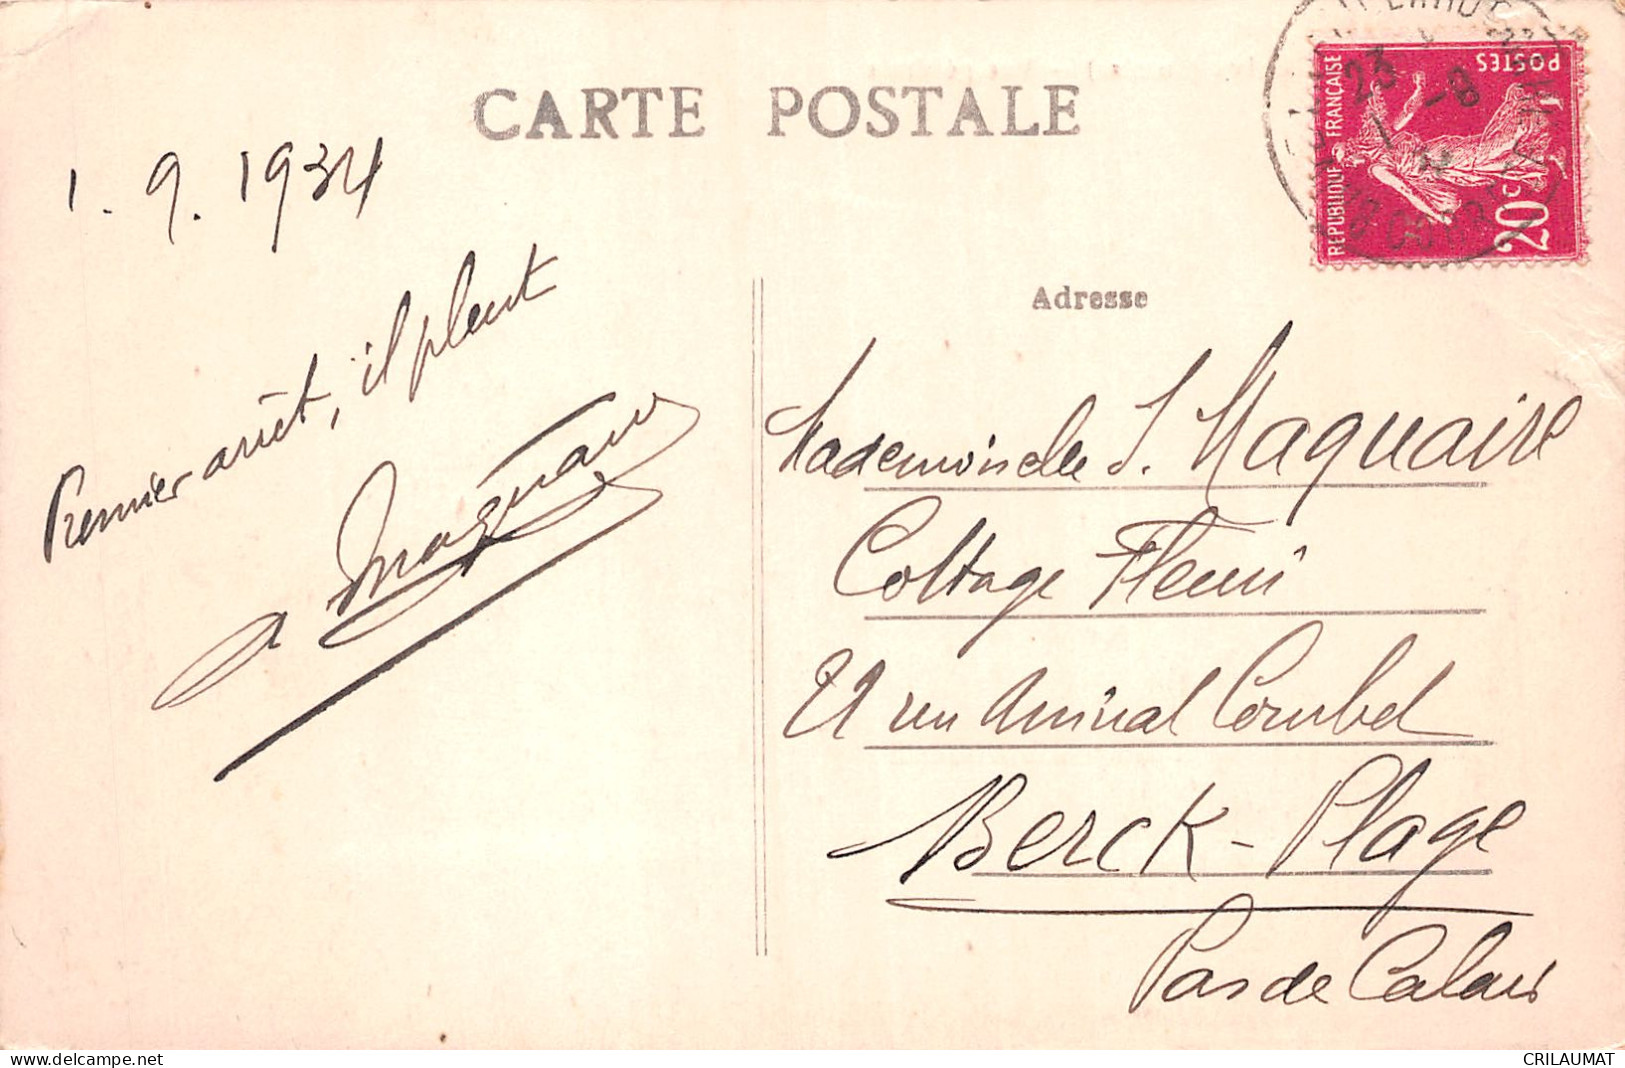 CARTE POSTALE
1. 9. 1934
Premier arrêt, il pleut
REPUBLIQUE FRANÇAISE
POSTES
20c
23
-8
Adresse
Mademoiselle S. Maquaire
Cottage Fleuri
21 rue Amiral Courbet
Berck-Plage
Pas de Calais
delcampe.net
CRILAUMAT